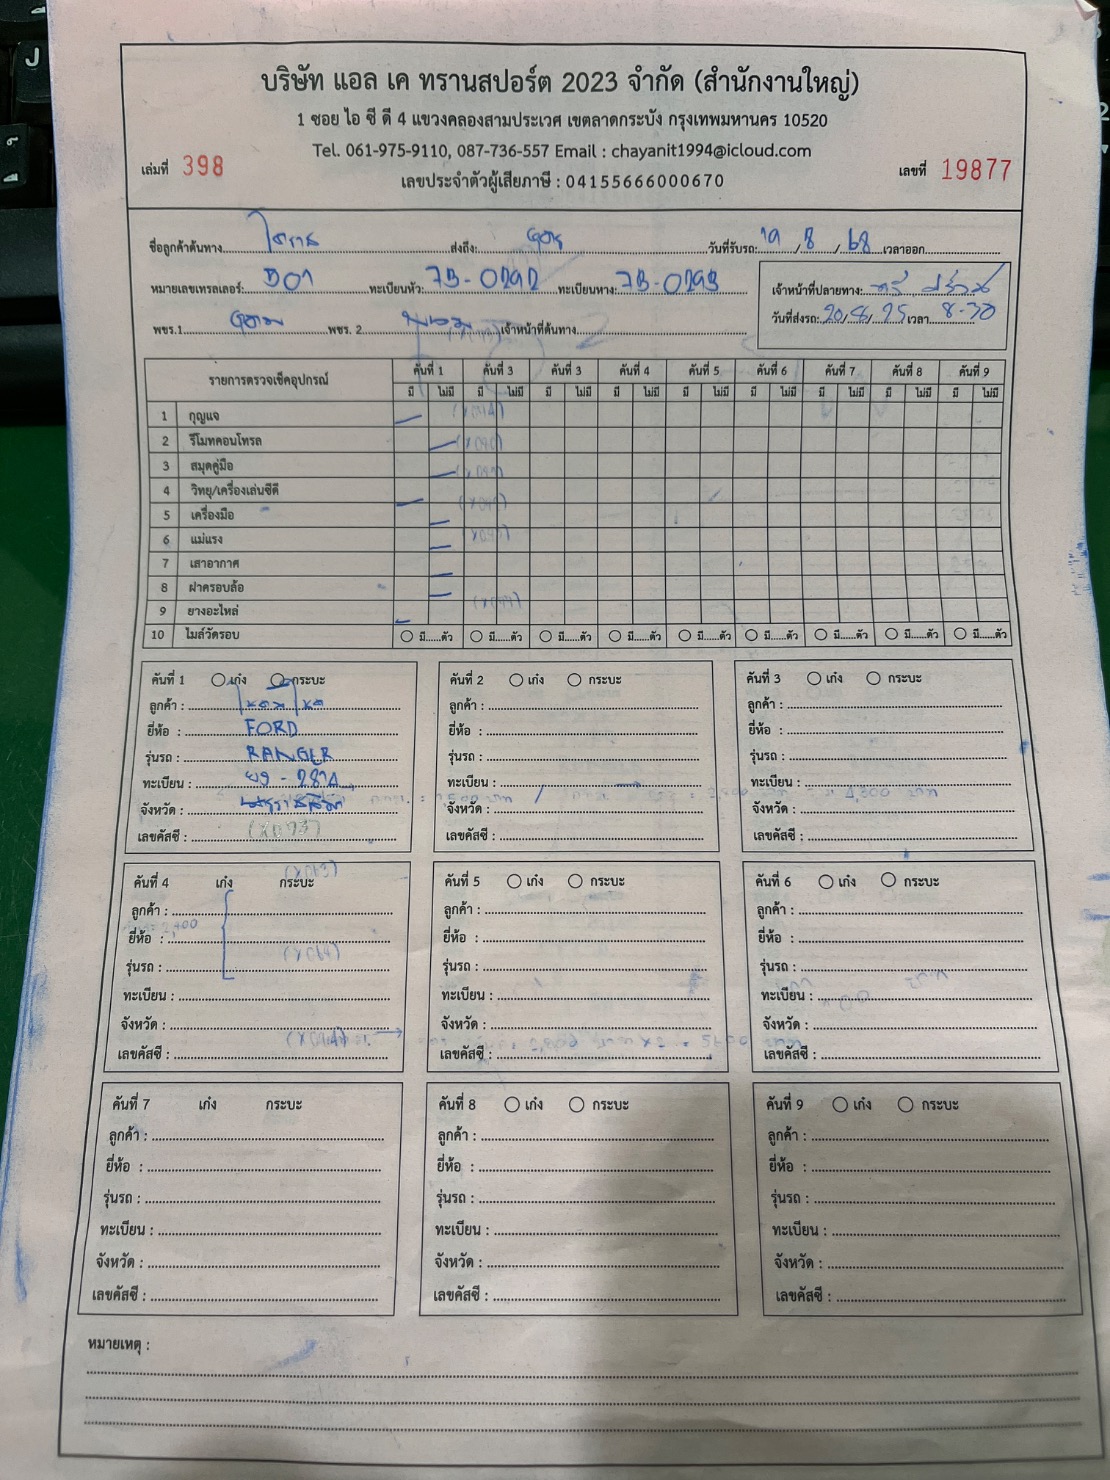 บริษัท แอล เค ทรานสปอร์ต 2023 จำกัด (สำนักงานใหญ่)
1 ซอย ไอ ซี ดี 4 แขวงคลองสามประเวศ เขตลาดกระบัง กรุงเทพมหานคร 10520
Tel. 061-975-9110, 087-736-557 Email : chayanit1994@icloud.com
เล่มที่ 398 เลขประจำตัวผู้เสียภาษี : 04155666000670 เลขที่ 19877
ชื่อลูกค้าต้นทาง โคราช ส่งถึง: วันที่รับรถ: 19 / 8 / 68 เวลาออก
หมายเลขเทรลเลอร์: D01 ทะเบียนหัว: 73-0292 ทะเบียนหาง: 73-0293 เจ้าหน้าที่ปลายทาง:
วันที่ส่งรถ: 20/8/25 เวลา 8-30
พชร.1 พชร. 2 เจ้าหน้าที่ต้นทาง
รายการตรวจเช็คอุปกรณ์ คันที่ 1 คันที่ 3 คันที่ 3 คันที่ 4 คันที่ 5 คันที่ 6 คันที่ 7 คันที่ 8 คันที่ 9
มี ไม่มี มี ไม่มี มี ไม่มี มี ไม่มี มี ไม่มี มี ไม่มี มี ไม่มี มี ไม่มี มี ไม่มี
1 กุญแจ
2 รีโมทคอนโทรล
3 สมุดคู่มือ
4 วิทยุ/เครื่องเล่นซีดี
5 เครื่องมือ
6 แม่แรง
7 เสาอากาศ
8 ฝาครอบล้อ
9 ยางอะไหล่
10 ไมล์วัดรอบ มี......ตัว มี......ตัว มี......ตัว มี......ตัว มี......ตัว มี......ตัว มี......ตัว มี......ตัว มี......ตัว
คันที่ 1 เก๋ง กระบะ
ลูกค้า :
ยี่ห้อ : FORD
รุ่นรถ : RANGER
ทะเบียน :
จังหวัด : นครราชสีมา
เลขคัสซี :
คันที่ 2 เก๋ง กระบะ
ลูกค้า :
ยี่ห้อ :
รุ่นรถ :
ทะเบียน :
จังหวัด :
เลขคัสซี :
คันที่ 3 เก๋ง กระบะ
ลูกค้า :
ยี่ห้อ :
รุ่นรถ :
ทะเบียน :
จังหวัด :
เลขคัสซี :
คันที่ 4 เก๋ง กระบะ
ลูกค้า :
ยี่ห้อ :
รุ่นรถ :
ทะเบียน :
จังหวัด :
เลขคัสซี :
คันที่ 5 เก๋ง กระบะ
ลูกค้า :
ยี่ห้อ :
รุ่นรถ :
ทะเบียน :
จังหวัด :
เลขคัสซี :
คันที่ 6 เก๋ง กระบะ
ลูกค้า :
ยี่ห้อ :
รุ่นรถ :
ทะเบียน :
จังหวัด :
เลขคัสซี :
คันที่ 7 เก๋ง กระบะ
ลูกค้า :
ยี่ห้อ :
รุ่นรถ :
ทะเบียน :
จังหวัด :
เลขคัสซี :
คันที่ 8 เก๋ง กระบะ
ลูกค้า :
ยี่ห้อ :
รุ่นรถ :
ทะเบียน :
จังหวัด :
เลขคัสซี :
คันที่ 9 เก๋ง กระบะ
ลูกค้า :
ยี่ห้อ :
รุ่นรถ :
ทะเบียน :
จังหวัด :
เลขคัสซี :
หมายเหตุ :